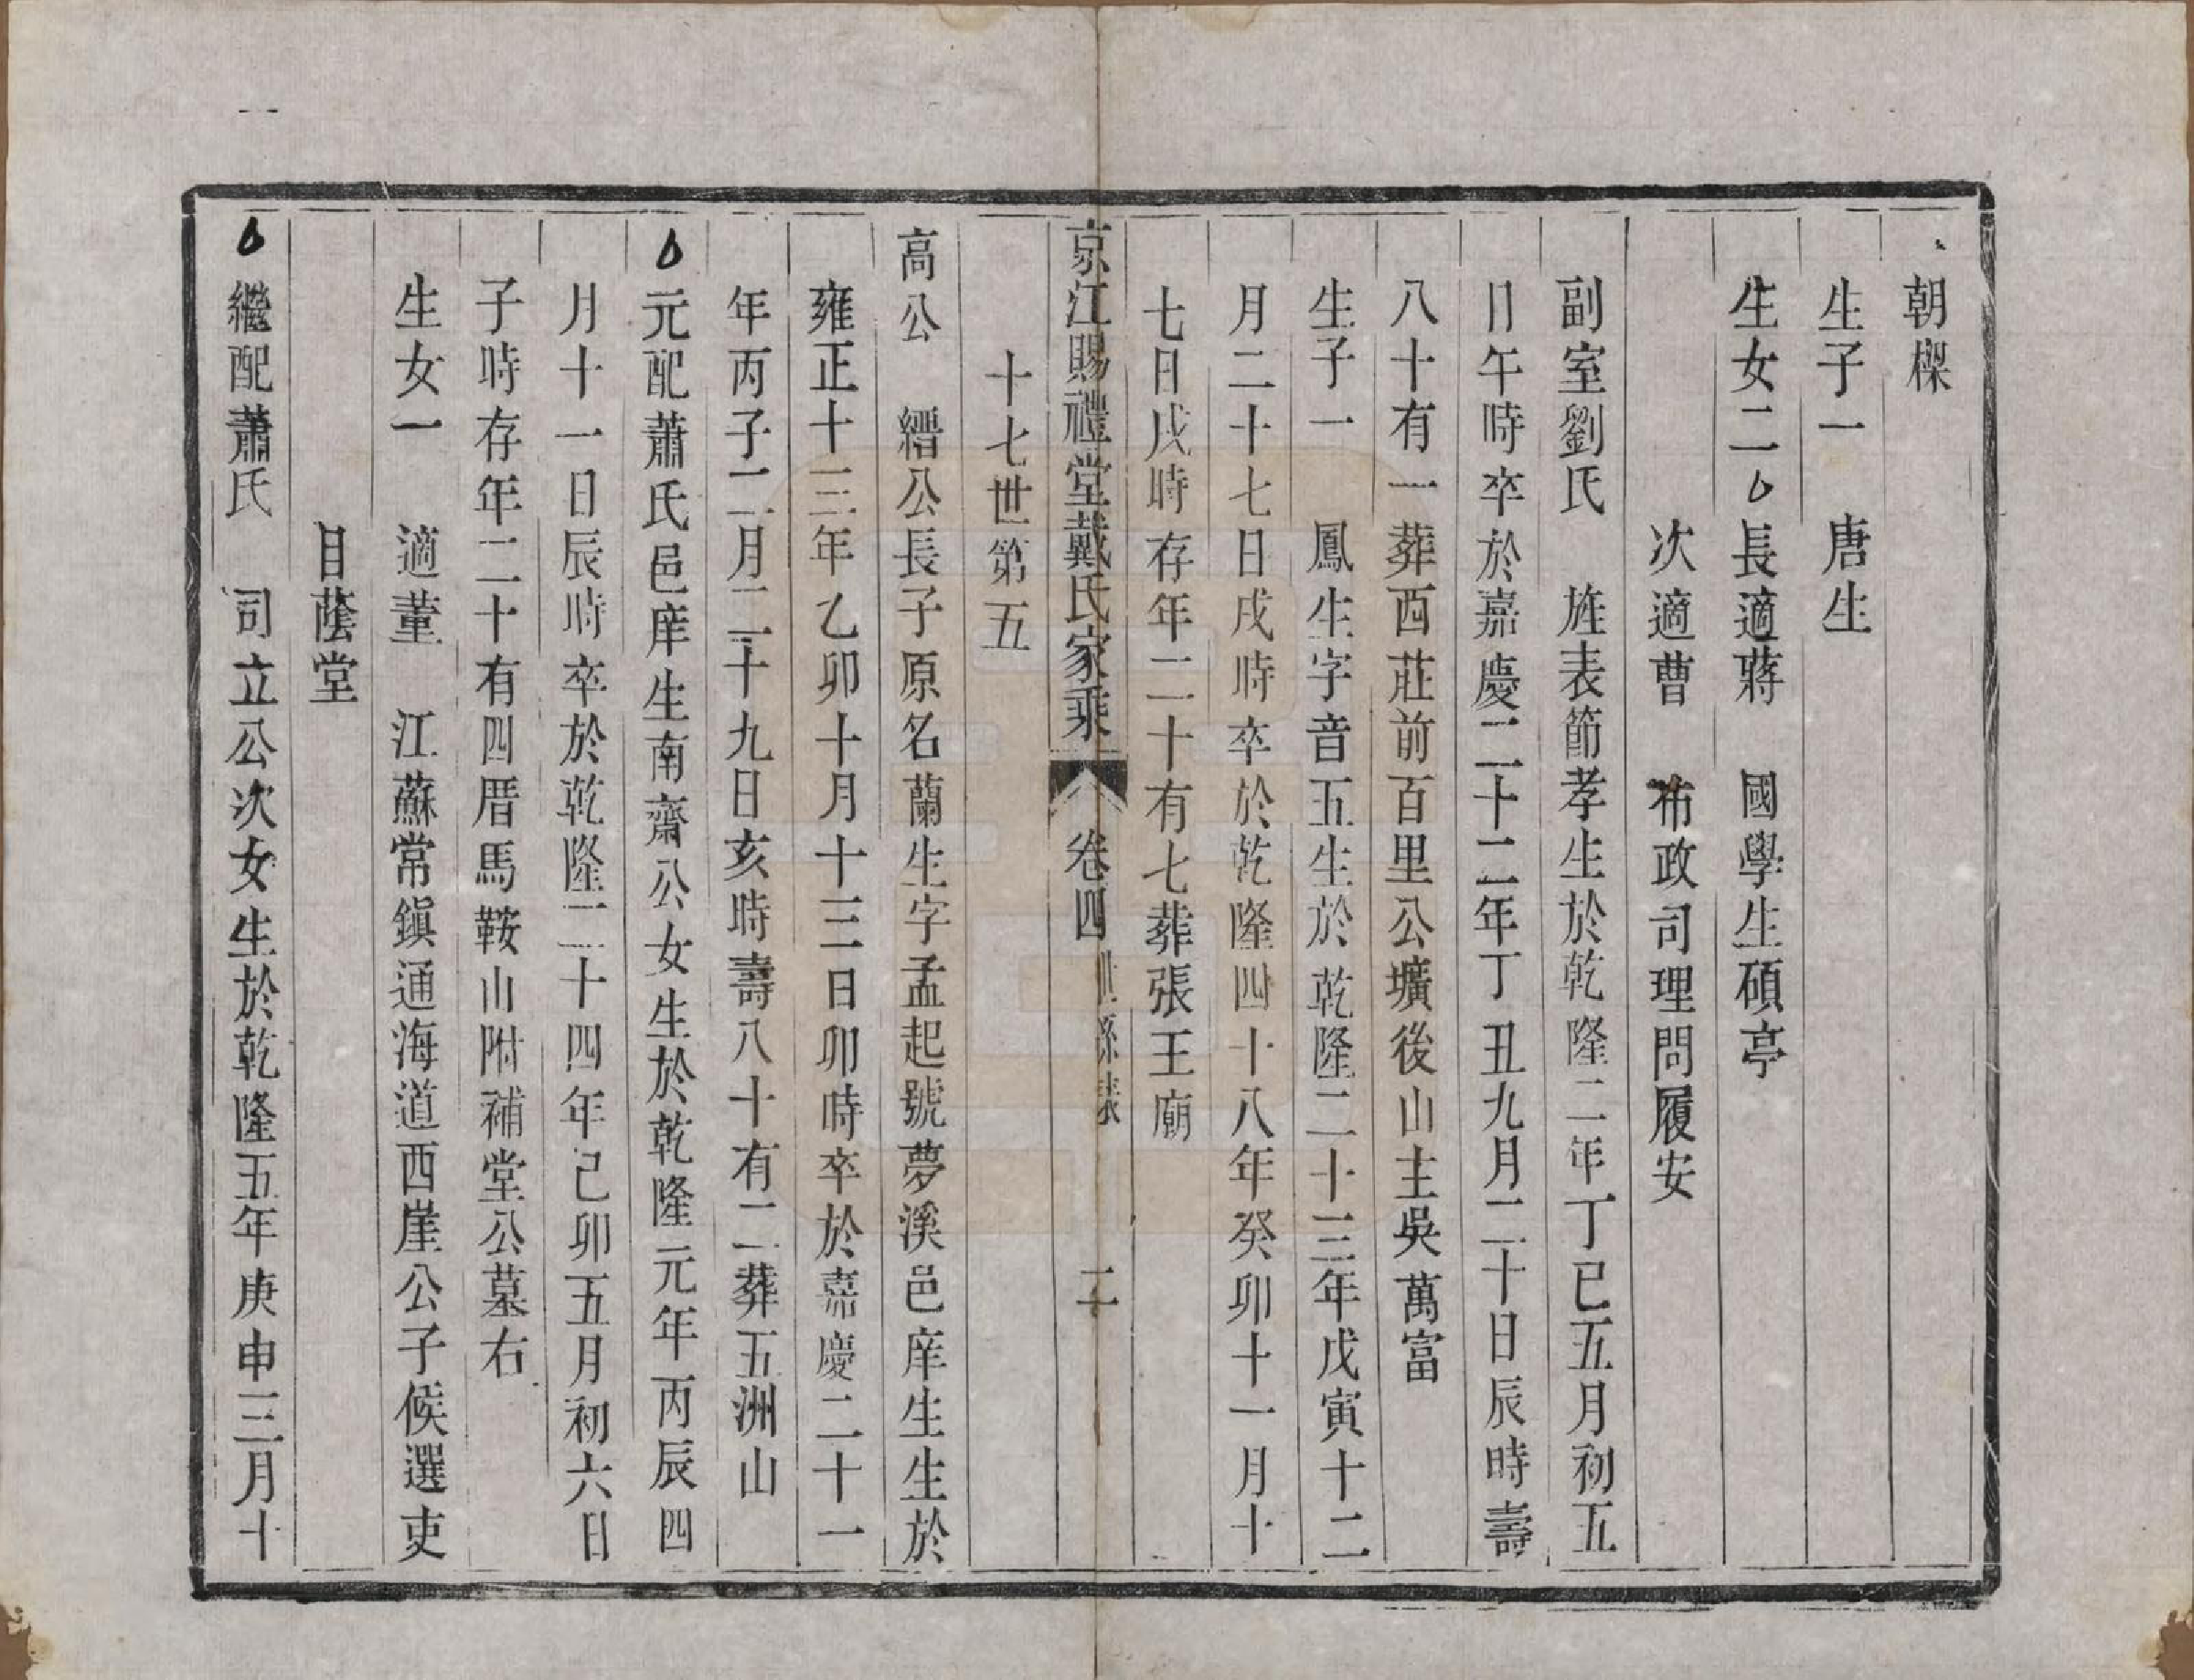 朝樑
生子一　唐生
生女二　長適蔣　國學生碩亭
次適曹　布政司理問履安
副室劉氏　旌表節孝生於乾隆二年丁巳五月初五
日午時卒於嘉慶二十二年丁丑九月二十日辰時壽
八十有一葬西莊前百里公壙後山主吳萬富
生子一　鳳生字音五生於乾隆二十三年戊寅十二
月二十七日戌時卒於乾隆四十八年癸卯十一月十
七日戌時存年二十有七葬張王廟
京江賜禮堂戴氏家乘　卷四　世系錄　二十
十七世第五
高公　縉公長子原名蘭生字孟起號夢溪邑庠生生於
雍正十三年乙卯十月十三日卯時卒於嘉慶二十一
年丙子二月二十九日亥時壽八十有二葬五洲山
元配蕭氏邑庠生南齋公女生於乾隆元年丙辰四
月十一日辰時卒於乾隆二十四年己卯五月初六日
子時存年二十有四厝馬鞍山附補堂公墓右
生女一　適董　江蘇常鎭通海道西崖公子候選吏
目蔭堂
繼配蕭氏　司立公次女生於乾隆五年庚申三月十